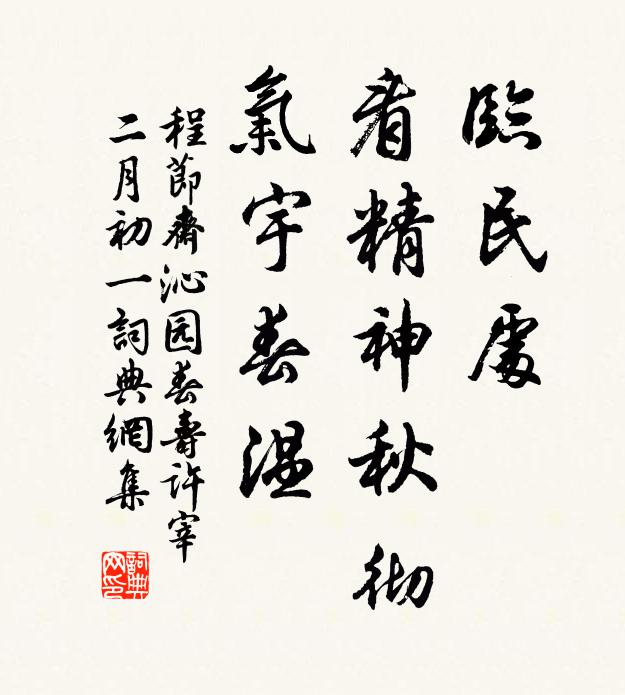 臨民處
看精神秋彻
氣宇春温
程節齋沁园春壽許宰
二月初一詞典網集
詞典網印